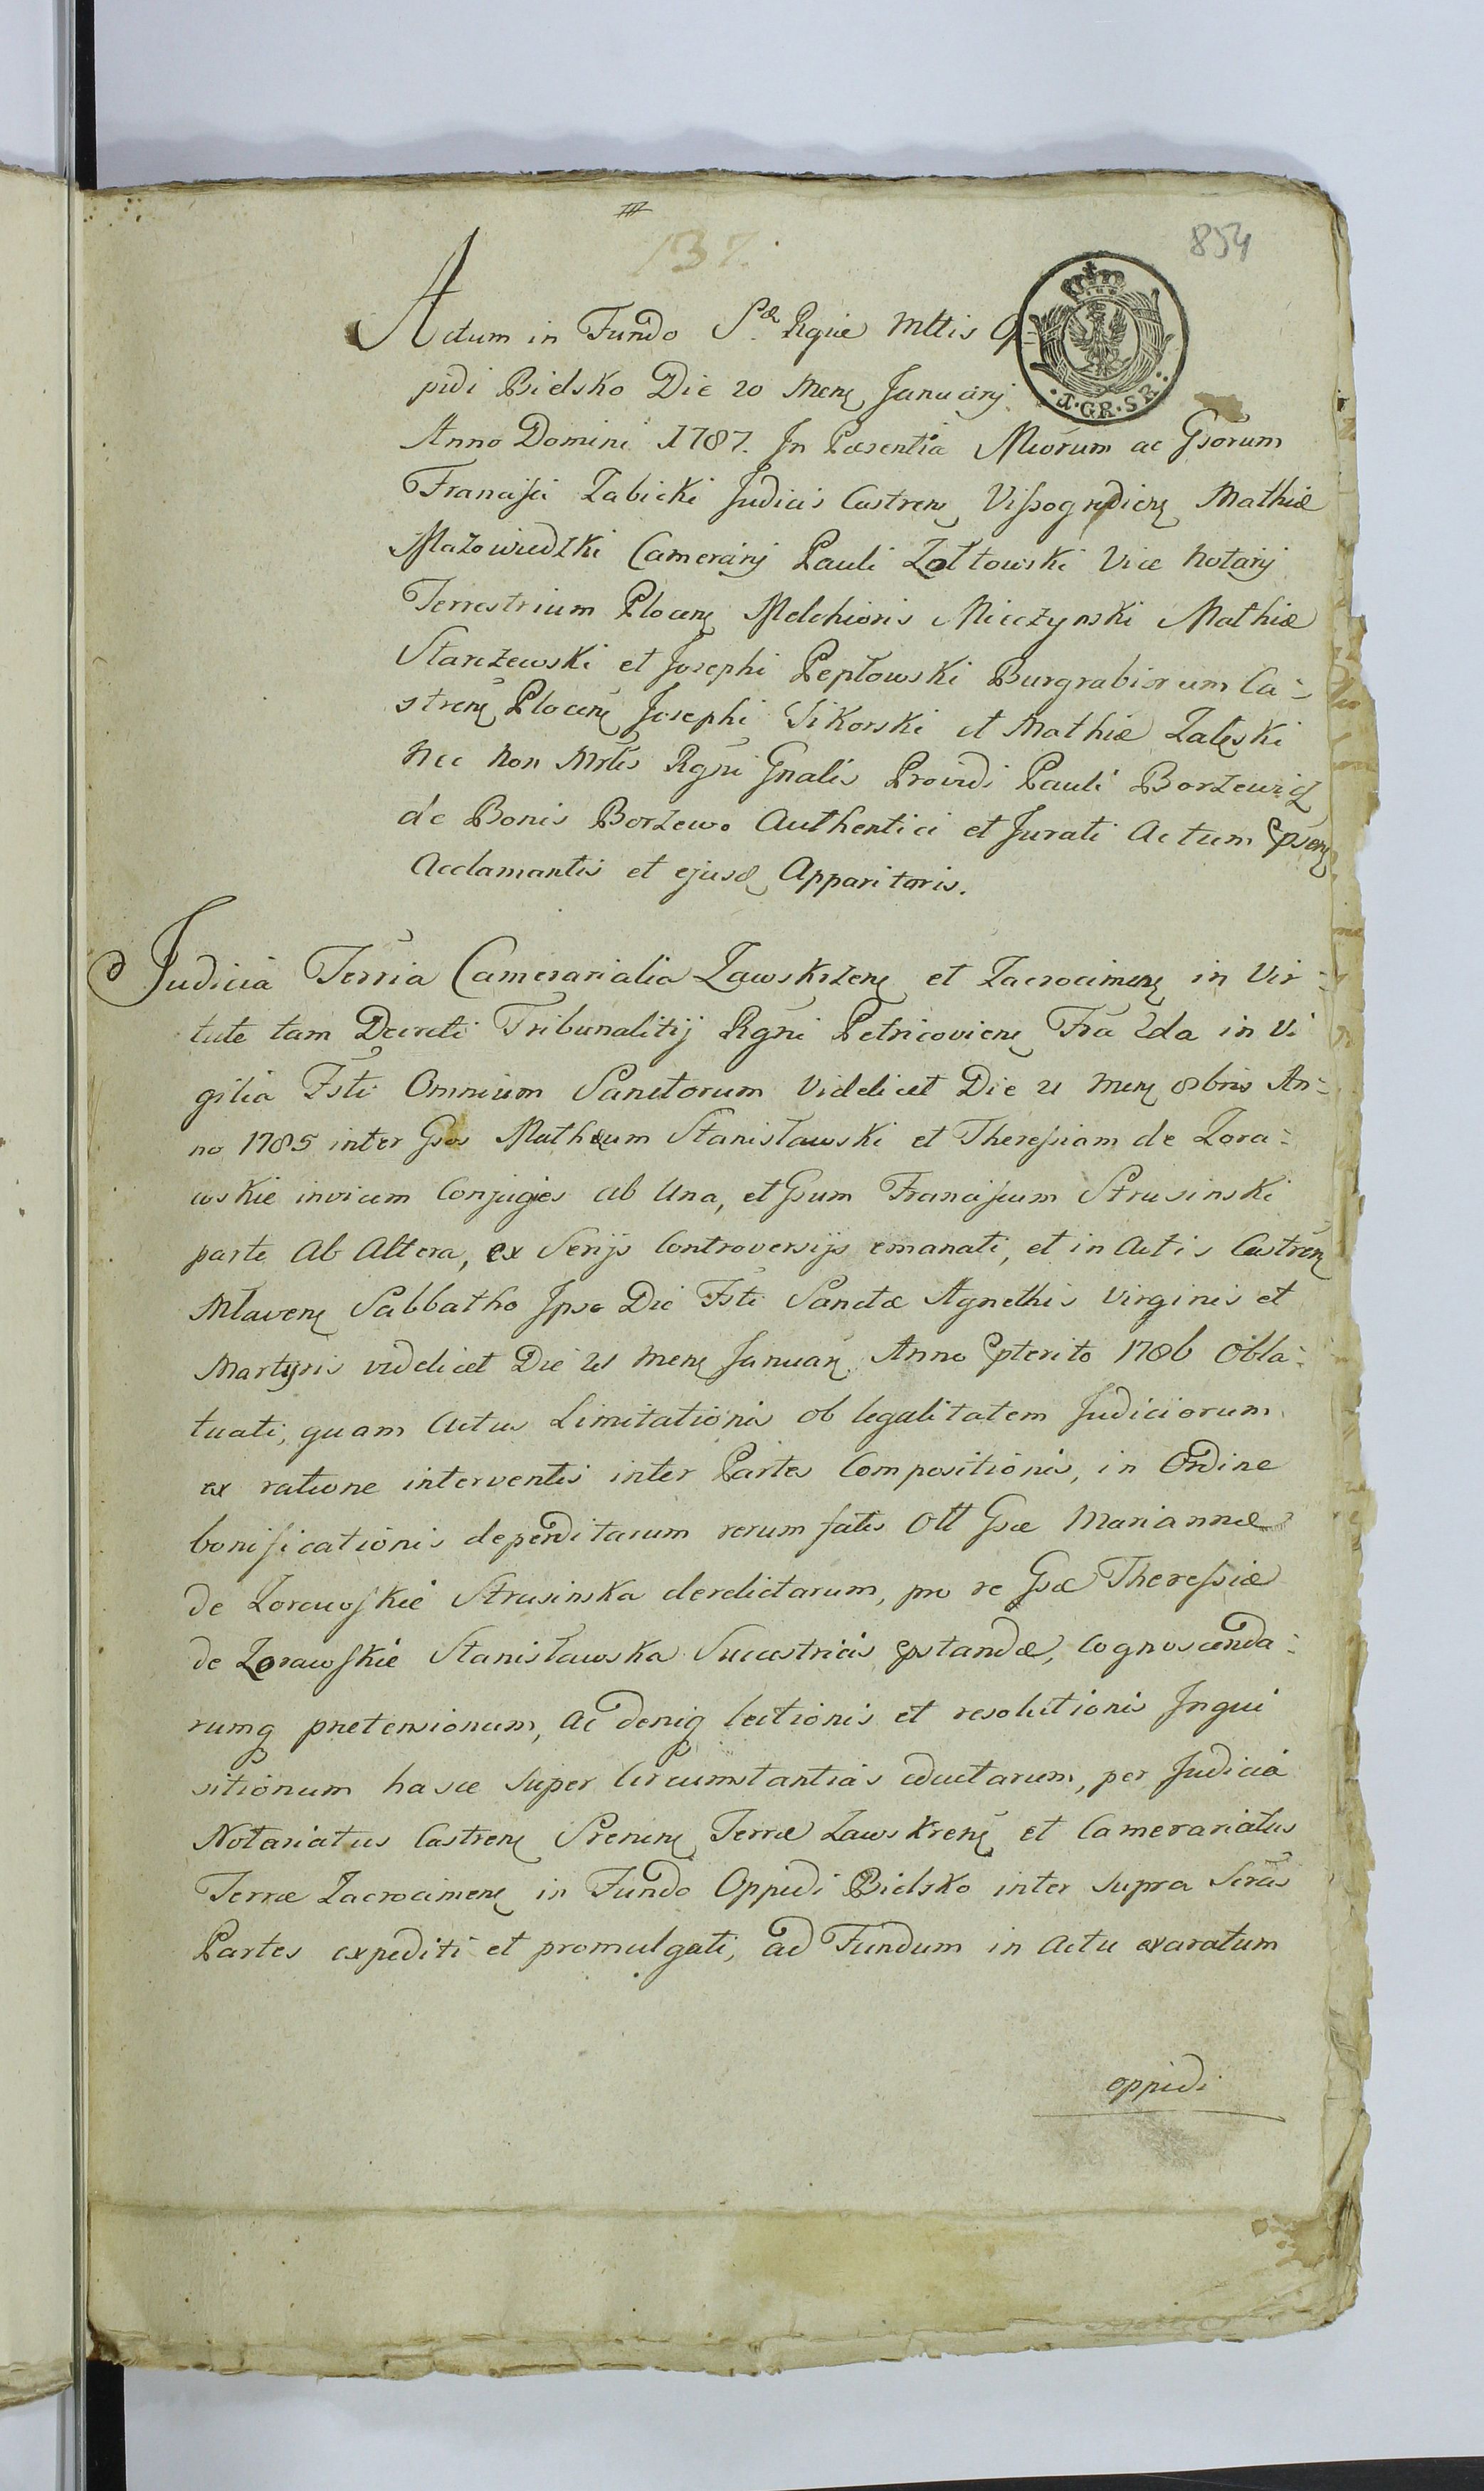 137.
854
Actum in Fundo S.æ Rgiæ Mttis Op
pidi Bielsko Die 20 Menş Januarij
.1.GR.S.R.
Anno Domini 1787. In Præsentia Mcorum ac Gsorum
Francisci Zabicki Judicis Castrenş Vissogrdienş Mathiæ
Mazowiedzki Camerarij Pauli Zołtowski Vice Notarij
Terrestrium Plocenş Melchioris Mieczynski Mathiæ
Starczewski et Josephi Pepłowski Burgrabiorum Ca=
strenş Plocenş Josephi Sikorski et Mathiæ Zaleski
Nec Non Mrlis Rgni Gnalis Providi Pauli Borzewicz
de Bonis Borzewo Authentici et Jurati Actum psenş
Acclamantis et ejusd Apparitoris.
Judicia Terria Camerarialia Zawskrzenş et Zacrocimenş in Vir=
tute tam Decreti Tribunalitij Rgni Petricovienş Fra 2da in Vi
gilia Fsti Omnium Sanctorum Videlicet Die 21 Menş 8bris An=
no 1785 inter Gsos Mathæum Stanisławski et Theressiam de Zora=
wskie invicem Conjuges ab Una, et Gsum Franciscum Strusinski
parte Ab Altera, ex Serijs Controversijs emanati, et in Actis Castrenş
Mlavenş Sabbatho Ipso Die Fsti Sanctæ Agnethis Virginis et
Martyris videlicet Die 21 Menş Januarş Anno pterito 1786 Obla=
tuati, quam Actus Limitationis ob legalitatem Judiciorum
ex ratione interventis inter Partes Compositionis, in Ordine
bonificationis deperditarum rerum fatis Olt Gsæ Mariannæ
de Zorawskie Strusinska derelictarum, pro re Gsæ Theressiæ
de Zorawskie Stanisławska Succestricis pstandæ, Cognoscenda=
rumq pretensionum, ac deniq lectionis et resolutionis Inqui
sitionum hasce super Circumstantias eductarum, per Judicia
Notariatus Castrenş Srenenş Terræ Zawskrenş et Camerariatus
Terræ Zacrocimenş in Fundo Oppidi Bielsko inter supra Scras
Partes expediti et promulgati, ad Fundum in Actu exaratum
oppidi